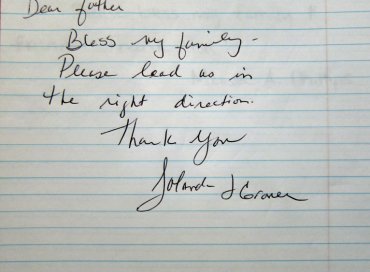 Dear father
Bless my family.
Please lead us in
the right direction.
Thank You